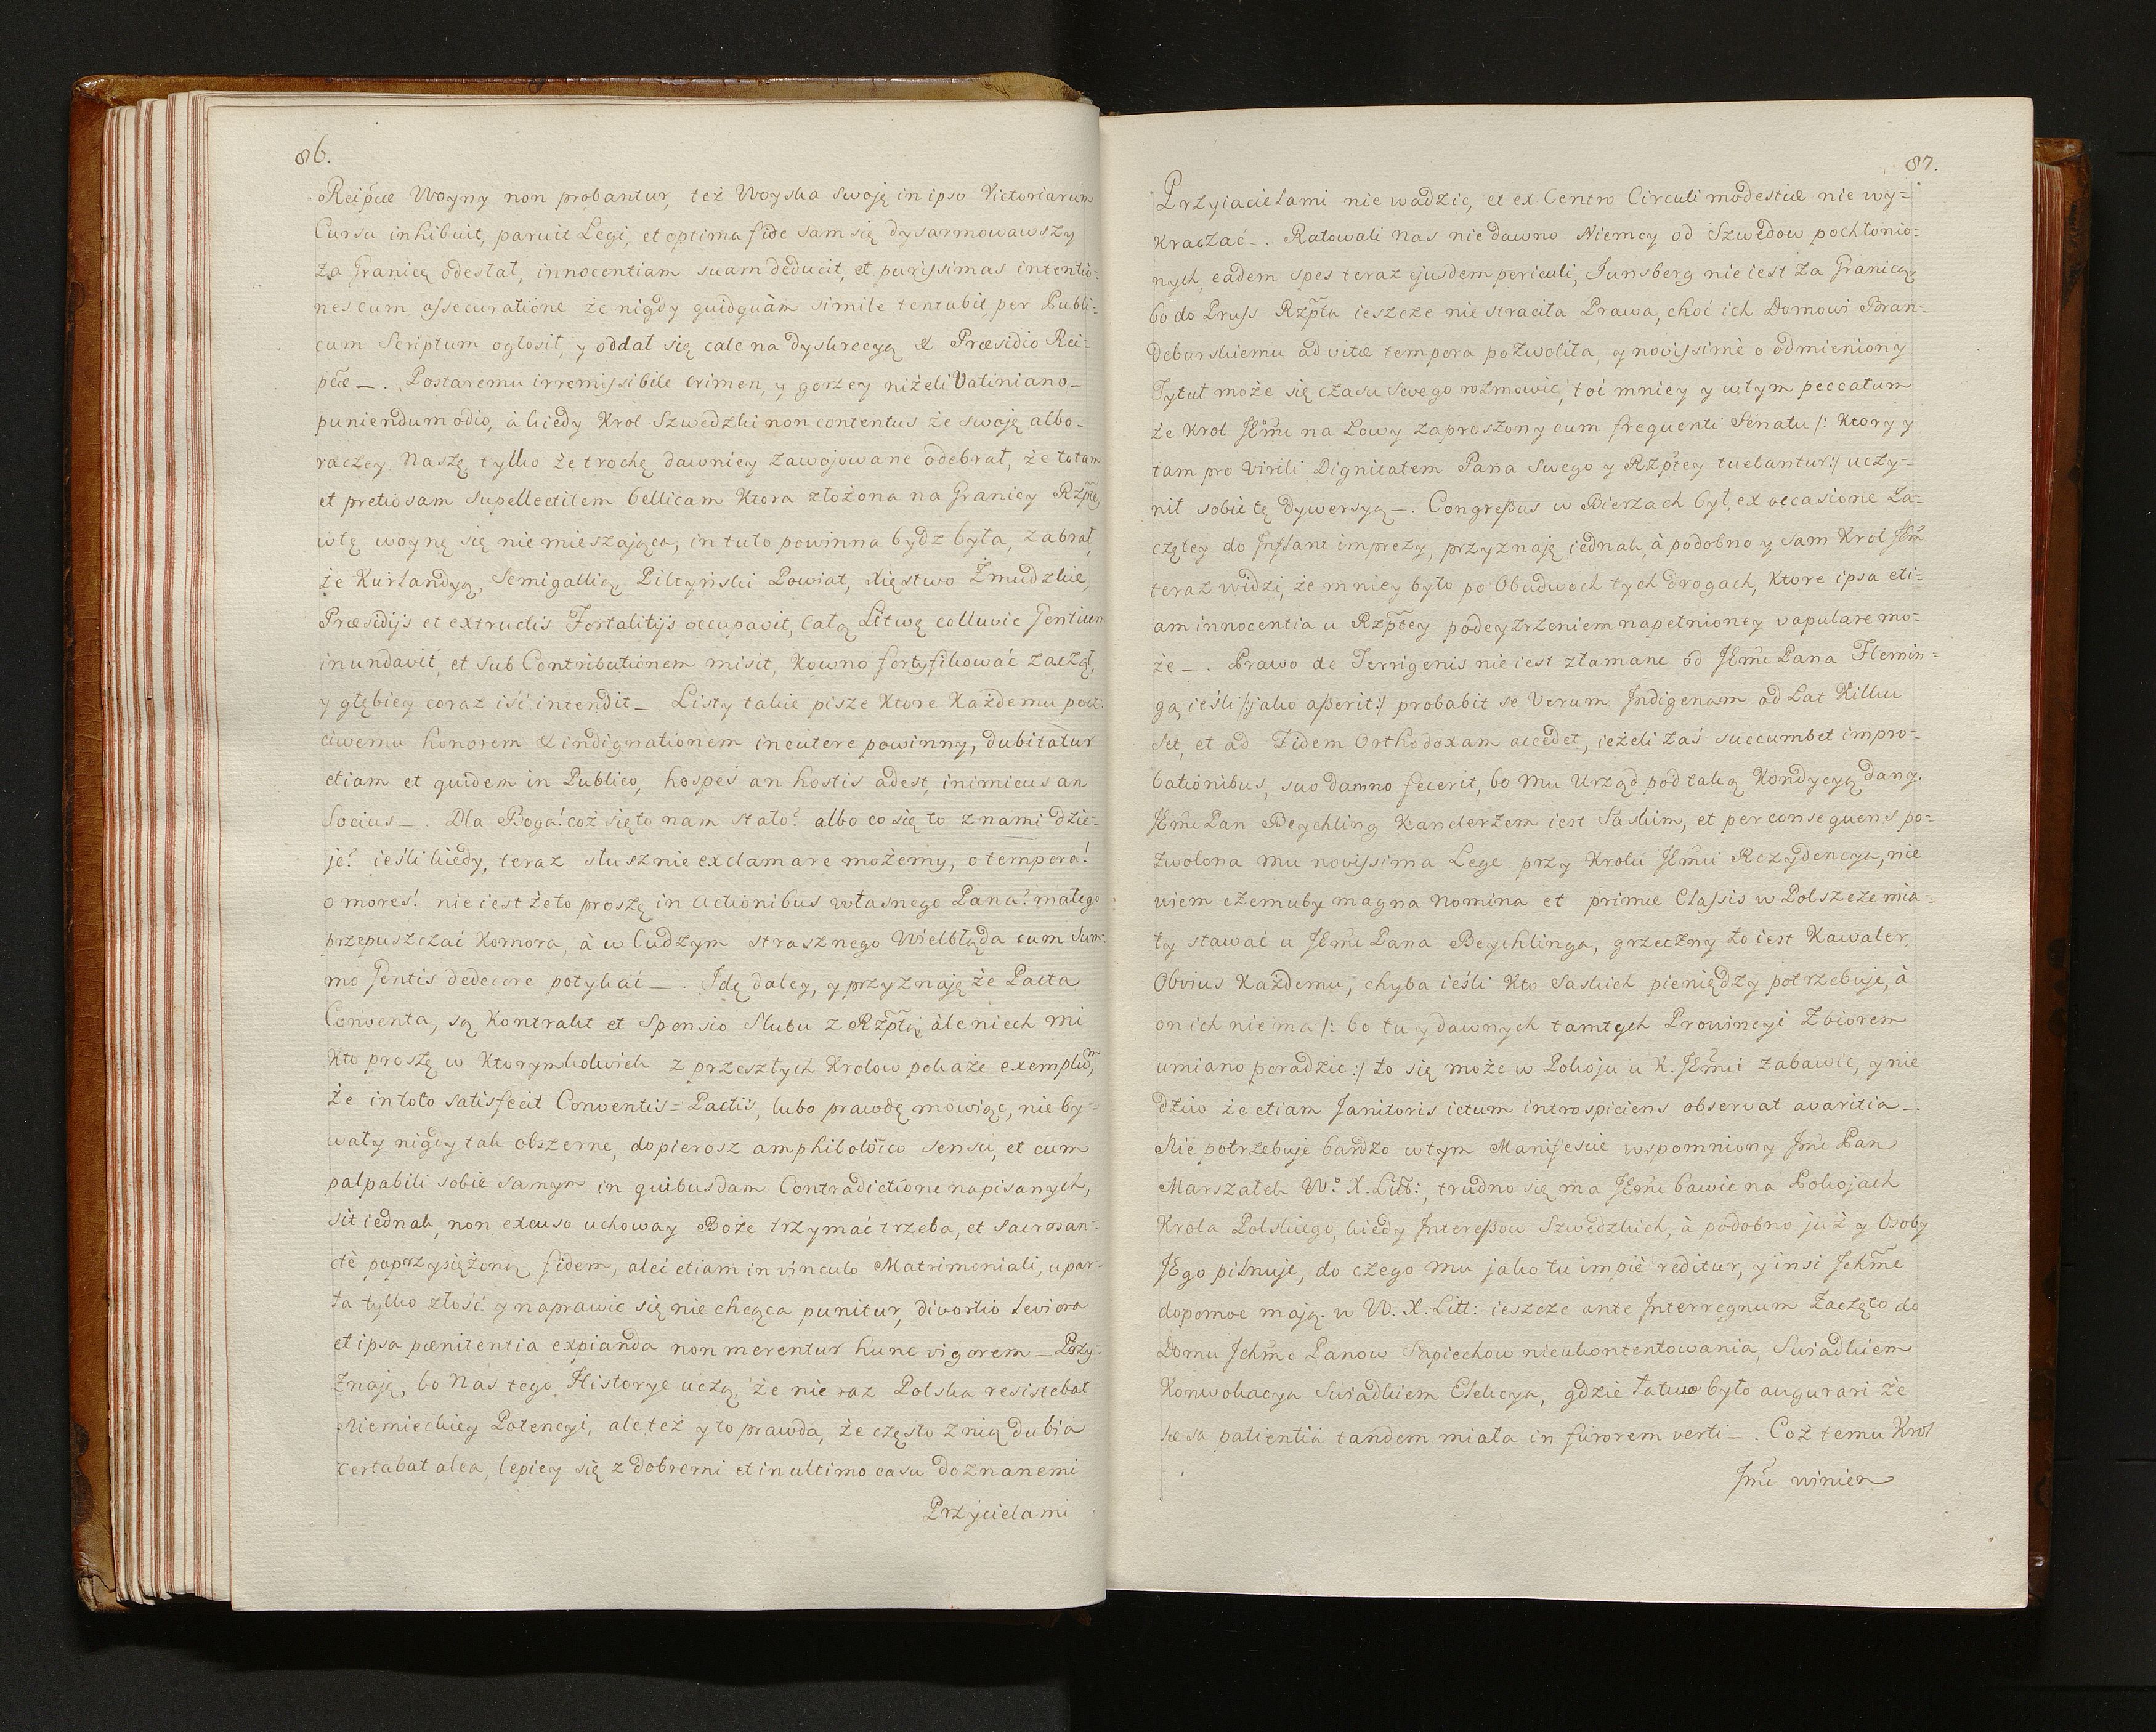 86.
Reipcæ Woyny non probantur, też Woyska swoję in ipso Victoriarum
Cursu inhibuit, paruit Legi, et optima fide sam się dysarmowawszy
za Granicę odesłał, innocentiam suam deducit, et purissimas intentio-
nes cum assecuratione że nigdy quidquàm simile tentabit, per Publi-
cum Scriptum ogłosił, y oddał się cale na dyskrecyą & Præsidio Rei-
pcæ —. Postaremu irremissibile crimen, y gorzey niżeli Vatiniano-
puniendum odio, à kiedy Krol Szwedzki non contentus że swoję albo-
raczey Naszę tylko że trochę dawniey zawojowane odebrał, że totam
et pretiosam supellectilem bellicam Ktora złożona na Granicy Rzptey
wtę woynę się nie mieszająca, in tuto powinna bydz była, zabrał,
że Kurlandyą, Semigallią, Piltyński Powiat, Xięstwo Żmudzkie,
Præsidijs et extructis Fortalitijs occupavit, całą Litwę colluvie Gentium
inundavit, et sub Contributionem misit, Kowno fortyfikować zaczął,
y głębiey coraz iść intendit —. Listy takie pisze Ktore Każdemu pocz-
ciwemu honorem & indignationem incutere powinny, dubitatur
etiam et quidem in Publico, hospes an hostis adest, inimicus an
Socius —. Dla Boga! coż się to nam stało? albo co się to z nami dzie-
je? ieśli kiedy, teraz słusznie exclamare możemy, o tempora!
o mores! nie iest że to proszę in Actionibus własnego Pana? małego
przepuszczać Komora, à w Cudzym strasznego Wielbłąda cum Sum-
mo Gentis dedecore połykać —. Idę daley, y przyznaję że Pacta
Conventa, są Kontrakt et Sponsio Slubu z Rzptą, àle niech mi
Kto proszę w Ktorymkolwiek z przeszłych Krolow pokaże exemplum,
że in toto satisfecit Conventis-Pactis, lubo prawdę mowiąc, nie by-
wały nigdy tak obszerne, dopierosz amphiboloico sensu, et cum
palpabili sobie samym in quibusdam Contradictione napisanych,
sit iednak, non excuso uchoway Boże trzymać trzeba, et Sacrosan-
ctè poprzysiężoną fidem, aleć etiam in vinculo Matrimoniali, upar-
ta tylko złość y naprawić się nie chcąca punitur, divortio leviora
et ipsa pænitentia expianda non merentur hunc vigorem — Przy-
znaję, bo Nas tego Historye uczą, że nie raz Polska resistebat
Niemieckiey Potencyi, ale też y to prawda, że często z nią dubia
certabat alea, lepiey się z dobremi et in ultimo casu doznanemi
Przyjcielami
87.
Przyiacielami nie wadzic, et ex Centro Circuli modestiæ nie wy-
kraczać —. Ratowali Nas niedawno Niemcy od Szwedow pochłonio-
nych, eadem spes teraz ejusdem periculi, Iunsberg nie iest za Granicą,
bo do Pruss Rzpta ieszcze nie straciła Prawa, choć ich Domowi Bran-
deburskiemu ad vitæ tempora pozwoliła, y novissimè o odmieniony
Tytuł może się czasu swego rozmowić, toć mniey y wtym peccatum
że Krol JEmć na Łowy zaproszony cum frequenti Senatu /: Ktory y
tam pro virili Dignitatem Pana Swego y Rzptey tuebantur :/ uczy-
nił sobie tę dywersyą —. Congressus w Bierzach był, ex occasione Za-
czętey do Inflant imprezy, przyznaję iednak, à podobno y sam Krol JEmć
teraz widzi, że mniey było po Obudwoch tych drogach, Ktore ipsa eti-
am innocentia u Rzptey podeyzrzeniem napełnioney vapulare mo-
że —. Prawo de Terrigenis nie iest złamane od JEmć Pana Flemin-
ga, ieśli /: jako asserit :/ probabit se Verum Indigenam od Lat Kilku
Set, et ad Fidem Orthodoxam accedet, ieżeli zaś succumbet impro-
bationibus, suo damno fecerit, bo Mu Urząd pod taką Kondycyą dany.
JEmć Pan Beychling Kanclerzem iest Saskim, et per consequens po-
zwolona mu novissima Lege przy Krolu JEmci Rezydencya, nie
wiem czemuby magna Nomina et primæ Classis w Polszcze mia-
ły stawać u JEmć Pana Beychlinga, grzeczny to iest Kawaler,
Obvius Każdemu, chyba ieśli Kto Saskich pieniędzy potrzebuje, à
on ich nie ma /: bo tu y dawnych tamtych Prowincyi Zbiorem
umiano poradzic :/ to się może w Pokoju u K. JEmci zabawic, y nie
dziw że etiam Janitoris ictum introspiciens observat avaritia —.
Nie potrzebuje bardzo wtym Manifescie wspomniony Jmć Pan
Marszałek W°: X. Litt:, trudno się ma JEmć bawic na Pokojach
Krola Polskiego, kiedy Interessow Szwedzkich, à podobno już y Osoby
JEgo pilnuje, do czego Mu jako tu impiè reditur, y insi Jchmć
dopomoc mają. w W. X. Litt: ieszcze ante Interregnum Zaczęto do
Domu Jchmć Panow Sapiechow nieukontentowania, Swiadkiem
Konwokacya Swiadkiem Elekcya, gdzie łatwo było augurari że
læsa patientia tandem miała in furorem verti —. Coż temu Krol
Jmć winien